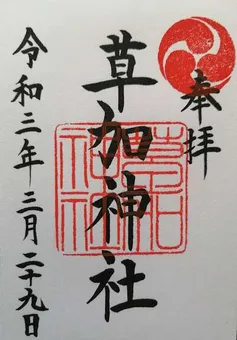 奉拝
草加神社
令和三年三月二十九日
草加神社